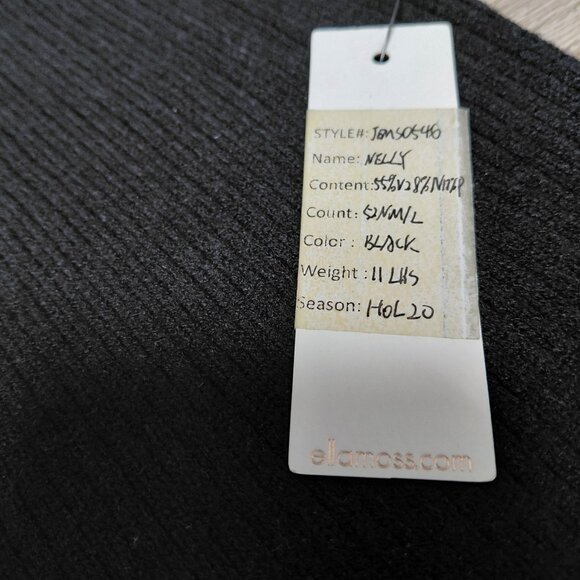 STYLE#: JEMS0546
Name: NELLY
Content: 55%V28%N17%P
Count: 52NM/L
Color : BLACK
Weight : 11 LHS
Season: HOL20
ellamoss.com